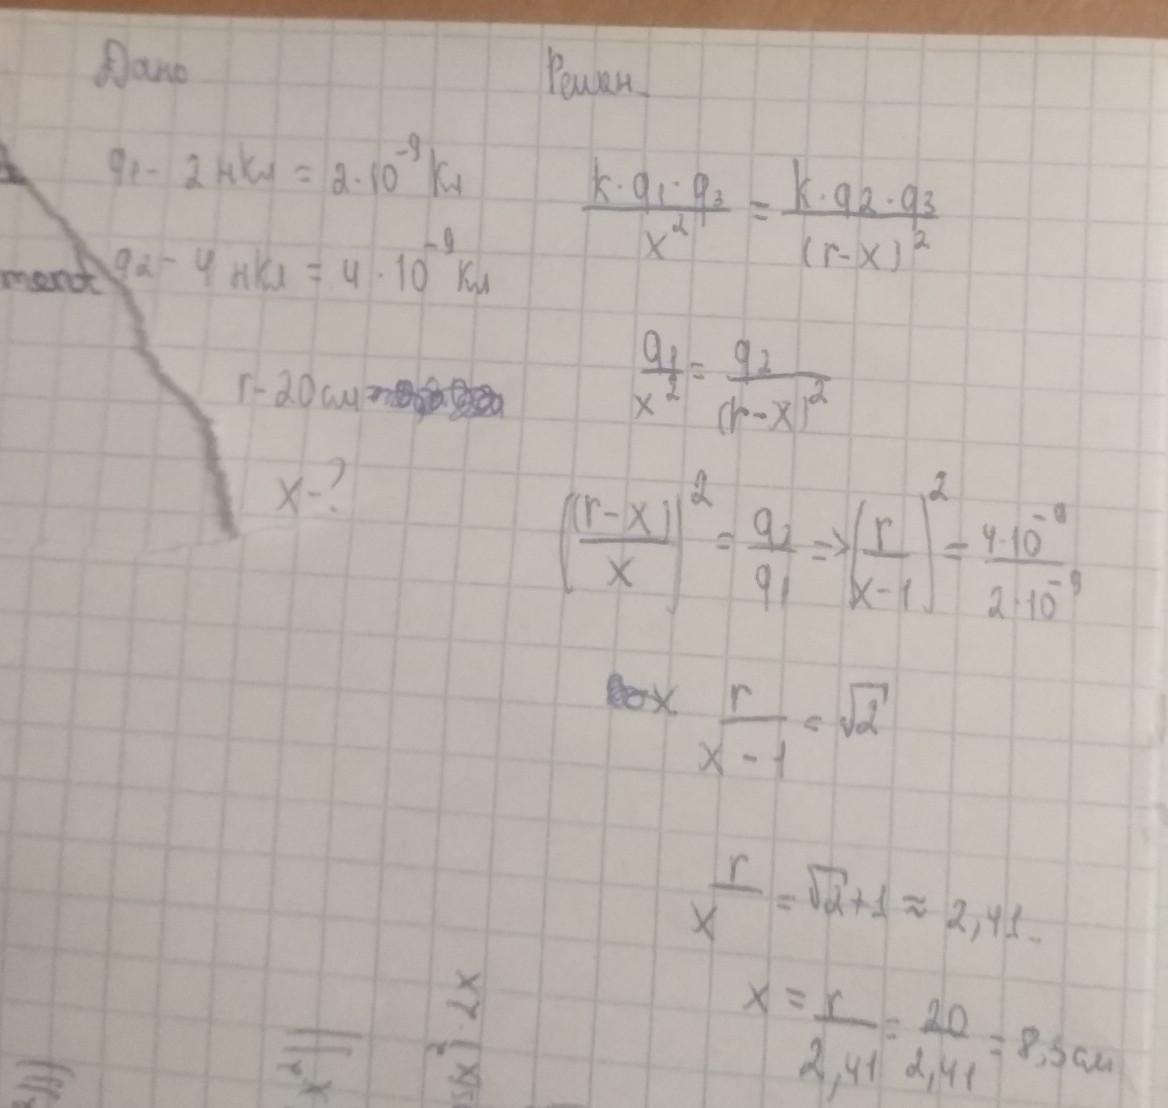 Дано
q1 - 2 нКл = 2·10⁻⁹ Кл
q2 - 4 нКл = 4·10⁻⁹ Кл
r - 20 см
x - ?
Решен
k·q1·q3 / x² = k·q2·q3 / (r-x)²
q1 / x² = q2 / (r-x)²
((r-x) / x)² = q2 / q1 => (r / x-1)² = 4·10⁻⁹ / 2·10⁻⁹
x r / x-1 = √2
r / x = √2+1 ≈ 2,41
x = r / 2,41 = 20 / 2,41 = 8,3 см